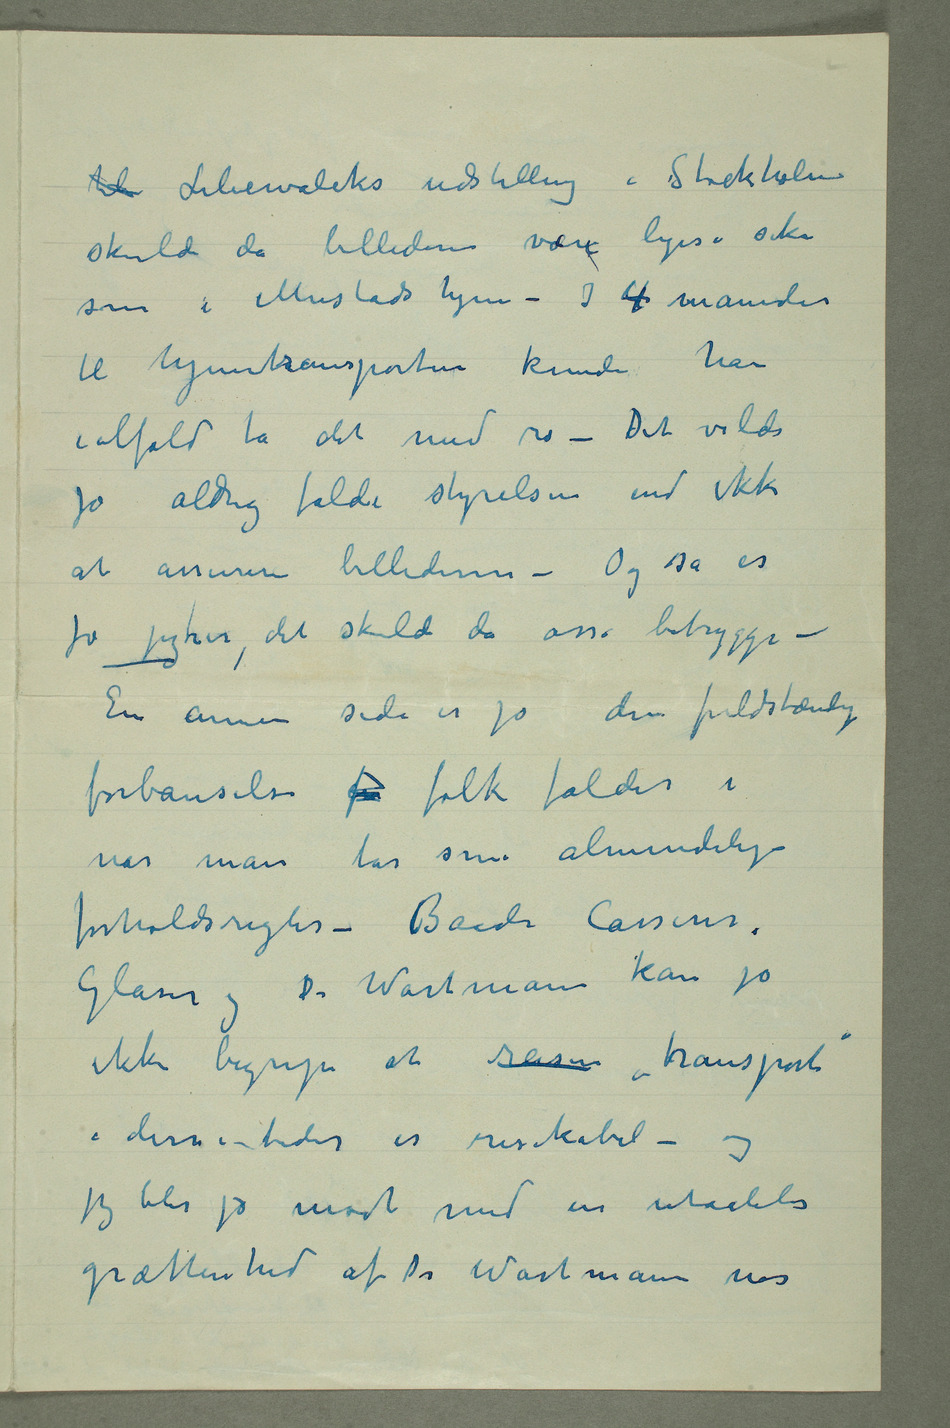 til Liljewalchs udstilling i Stockholm
skulde da billederne være ligeså sikre
som i Mustads hjem – I 4 maaneder
til hjemtransporten kunde han
ialfald ta det med ro – Det vilde
jo aldrig falde styrelsen ind ikke
at assurere billederne – Og så er
jo jeg her, det skulde da osså betrygge –
En annen side er jo den fuldstændige
forbauselse for folk falder i
når man tar sine almindelige
forholdsregler – Baade Cassirer,
Glaser og Dr Wartmann kan jo
ikke begripe at reisen „transport“
i disse tider er risikabel – og
jeg blir jo mødt med en utaalelig
grættenhed af Dr Wartmann når